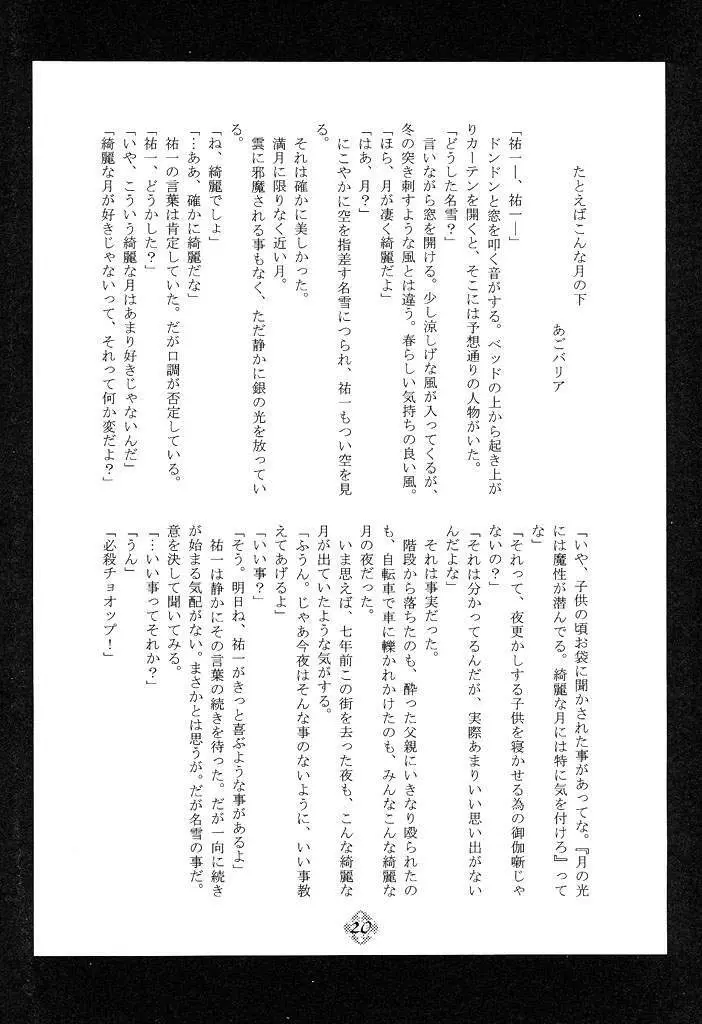 たとえばこんな月の下
あごバリア
「祐一―、祐一―」
ドンドンと窓を叩く音がする。ベッドの上から起き上が
りカーテンを開くと、そこには予想通りの人物がいた。
「どうした名雪？」
言いながら窓を開ける。少し涼しげな風が入ってくるが、
冬の突き刺すような風とは違う。春らしい気持ちの良い風。
「ほら、月が凄く綺麗だよ」
「はあ、月？」
にこやかに空を指差す名雪につられ、祐一もつい空を見
る。
それは確かに美しかった。
満月に限りなく近い月。
雲に邪魔される事もなく、ただ静かに銀の光を放ってい
る。
「ね、綺麗でしょ」
「…ああ、確かに綺麗だな」
祐一の言葉は肯定していた。だが口調が否定している。
「祐一、どうかした？」
「いや、こういう綺麗な月はあまり好きじゃないんだ」
「綺麗な月が好きじゃないって、それって何か変だよ？」
「いや、子供の頃お袋に聞かされた事があってな。『月の光
には魔性が潜んでる。綺麗な月には特に気を付けろ』って
な」
「それって、夜更かしする子供を寝かせる為の御伽噺じゃ
ないの？」
「それは分かってるんだが、実際あまりいい思い出がない
んだよな」
それは事実だった。
階段から落ちたのも、酔った父親にいきなり殴られたの
も、自転車で車に轢かれかけたのも、みんなこんな綺麗な
月の夜だった。
いま思えば、七年前この街を去った夜も、こんな綺麗な
月が出ていたような気がする。
「ふうん。じゃあ今夜はそんな事のないように、いい事教
えてあげるよ」
「いい事？」
「そう。明日ね、祐一がきっと喜ぶような事があるよ」
祐一は静かにその言葉の続きを待った。だが一向に続き
が始まる気配がない。まさかとは思うが。だが名雪の事だ。
意を決して聞いてみる。
「…いい事ってそれか？」
「うん」
「必殺チョオップ！」
20